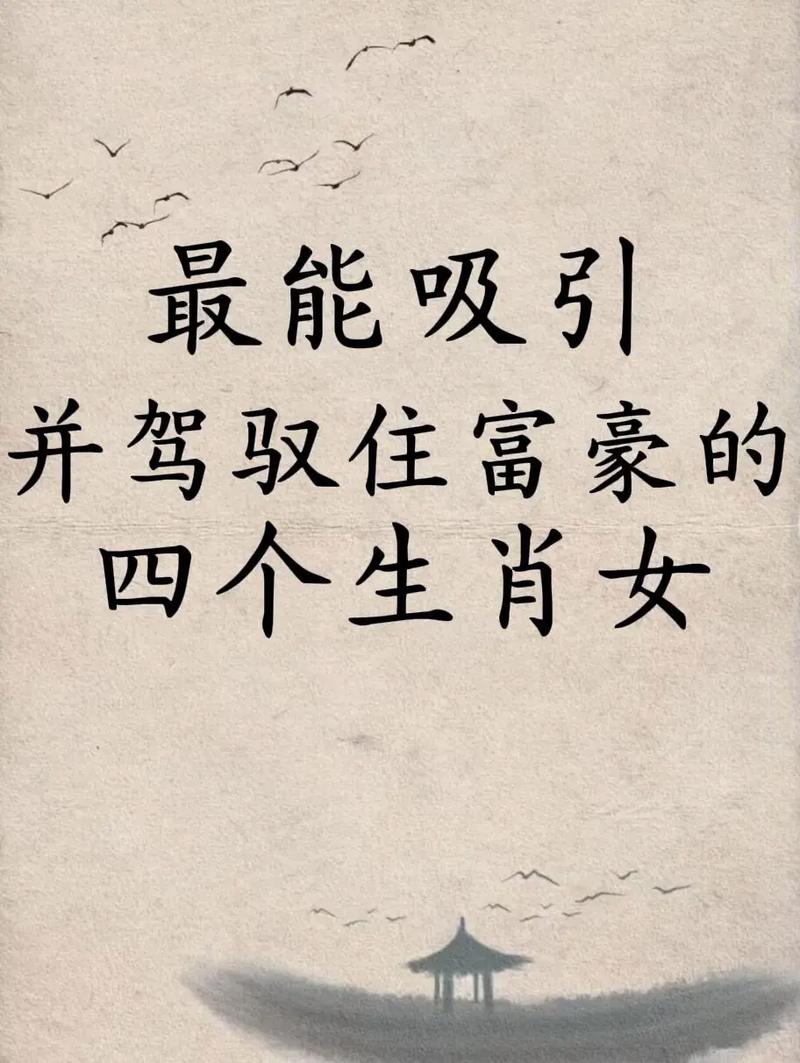 最能吸引
并驾驭住富豪的
四个生肖女